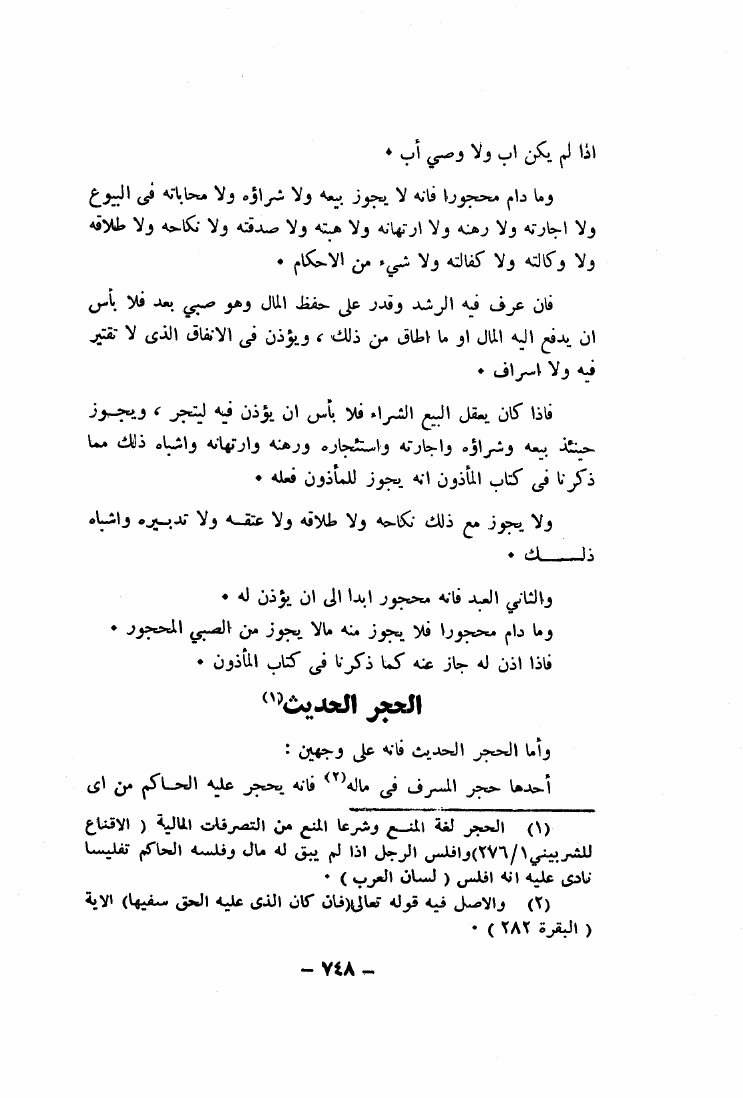 اذا لم يكن اب ولا وصي أب •
وما دام محجورا فانه لا يجوز بيعه ولا شراؤه ولا محاباته فى البيوع
ولا اجارته ولا رهنه ولا ارتهانه ولا هبته ولا صدقته ولا نكاحه ولا طلاقه
ولا وكالته ولا كفالته ولا شيء من الاحكام •
فان عرف فيه الرشد وقدر على حفظ المال وهو صبي بعد فلا بأس
ان يدفع اليه المال او ما اطاق من ذلك ، ويؤذن فى الانفاق الذى لا تقتير
فيه ولا اسراف •
فاذا كان يعقل البيع الشراء فلا بأس ان يؤذن فيه ليتجر ، ويجــوز
حينئذ بيعه وشراؤه واجارته واستئجاره ورهنه وارتهانه واشباه ذلك مما
ذكرنا فى كتاب المأذون انه يجوز للمأذون فعله •
ولا يجوز مع ذلك نكاحه ولا طلاقه ولا عتقــه ولا تدبــيره واشباه
ذلـــــك •
والثاني العبد فانه محجور ابدا الى ان يؤذن له •
وما دام محجورا فلا يجوز منه مالا يجوز من الصبي المحجور •
فاذا اذن له جاز عنه كما ذكرنا فى كتاب المأذون •
الحجر الحديث(١)
وأما الحجر الحديث فانه على وجهين :
أحدها حجر المسرف فى ماله(٢) فانه يحجر عليه الحـاكم من اى
(١) الحجر لغة المنــع وشرعا المنع من التصرفات المالية ( الاقناع
للشربيني ٢٧٦/١)وافلس الرجل اذا لم يبق له مال وفلسه الحاكم تفليسا
نادى عليه انه افلس ( لسان العرب ) •
(٢) والاصل فيه قوله تعالى(فان كان الذى عليه الحق سفيها) الاية
( البقرة ٢٨٢ ) •
– ٧٤٨ –